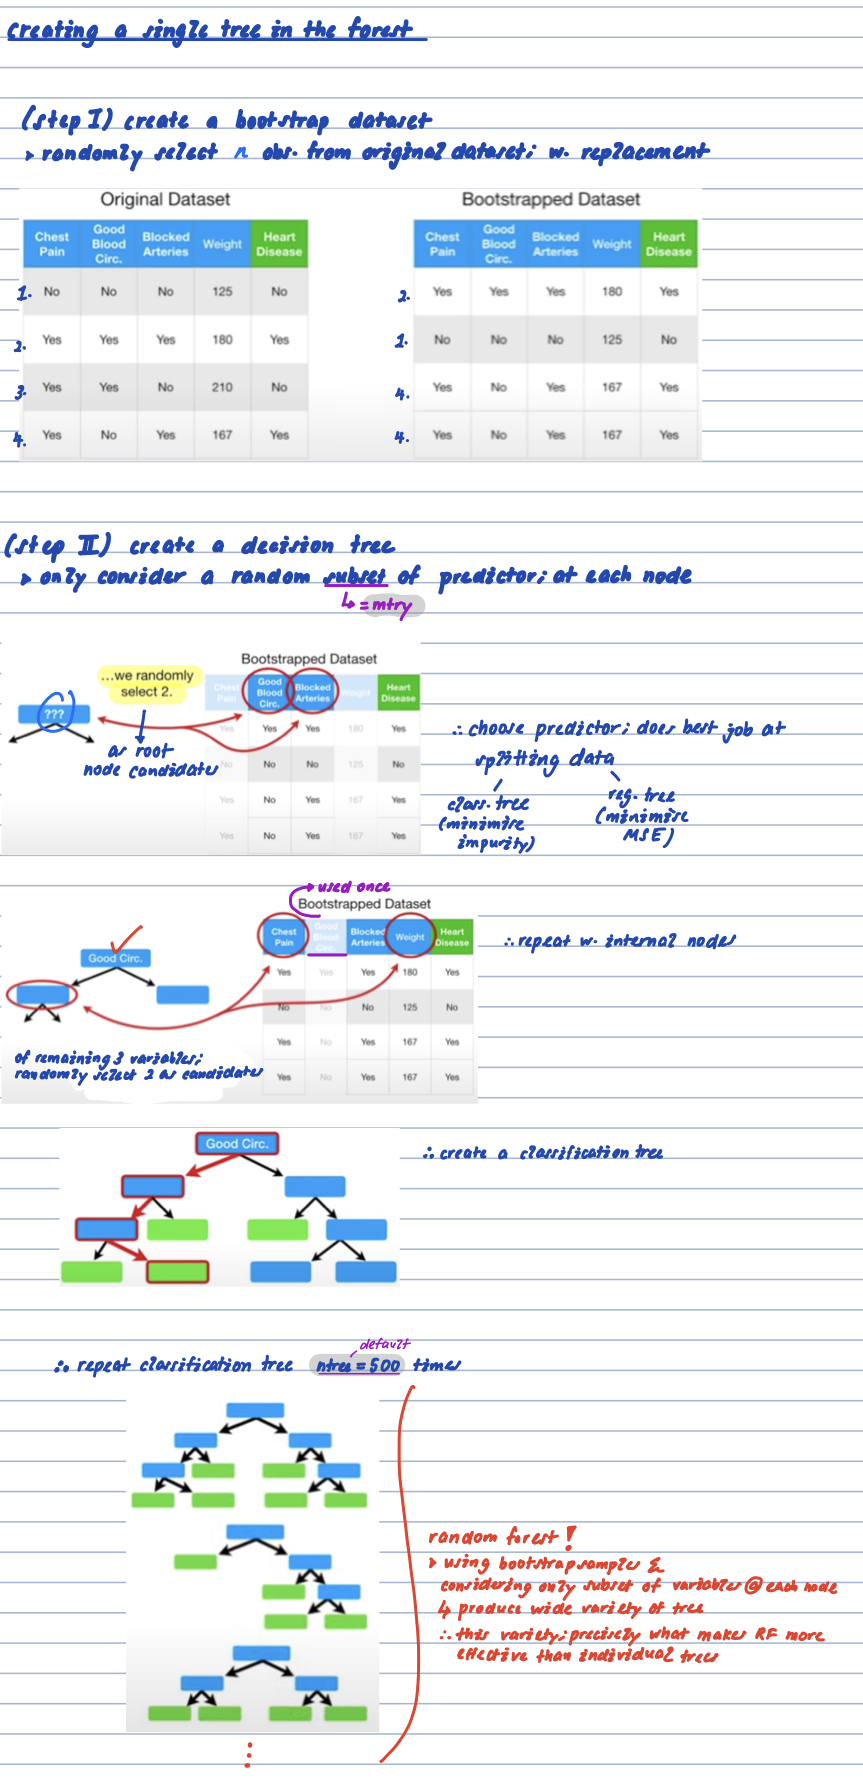 creating a single tree in the forest
(step I) create a bootstrap dataset
> randomly select n obs. from original dataset; w. replacement
Original Dataset
Chest Pain Good Blood Circ. Blocked Arteries Weight Heart Disease
1. No No No 125 No
2. Yes Yes Yes 180 Yes
3. Yes Yes No 210 No
4. Yes No Yes 167 Yes
Bootstrapped Dataset
Chest Pain Good Blood Circ. Blocked Arteries Weight Heart Disease
2. Yes Yes Yes 180 Yes
1. No No No 125 No
4. Yes No Yes 167 Yes
4. Yes No Yes 167 Yes
(step II) create a decision tree
> only consider a random subset of predictor; at each node
↳ = mtry
Bootstrapped Dataset
...we randomly
select 2.
???
as root
node candidates
Chest Pain Good Blood Circ. Blocked Arteries Weight Heart Disease
Yes Yes Yes 180 Yes
No No No 125 No
Yes No Yes 167 Yes
Yes No Yes 167 Yes
∴ choose predictor; does best job at
splitting data
class. tree
(minimise
impurity)
reg. tree
(minimise
MSE)
used once
Bootstrapped Dataset
Good Circ.
Chest Pain Good Blood Circ. Blocked Arteries Weight Heart Disease
Yes Yes Yes 180 Yes
No No No 125 No
Yes No Yes 167 Yes
Yes No Yes 167 Yes
∴ repeat w. internal nodes
of remaining 3 variables;
randomly select 2 as candidates
Good Circ.
∴ create a classification tree
default
∴ repeat classification tree ntree = 500 times
random forest!
> using bootstrap samples &
considering only subset of variables @ each node
↳ produce wide variety of trees
∴ this variety; precisely what makes RF more
effective than individual trees